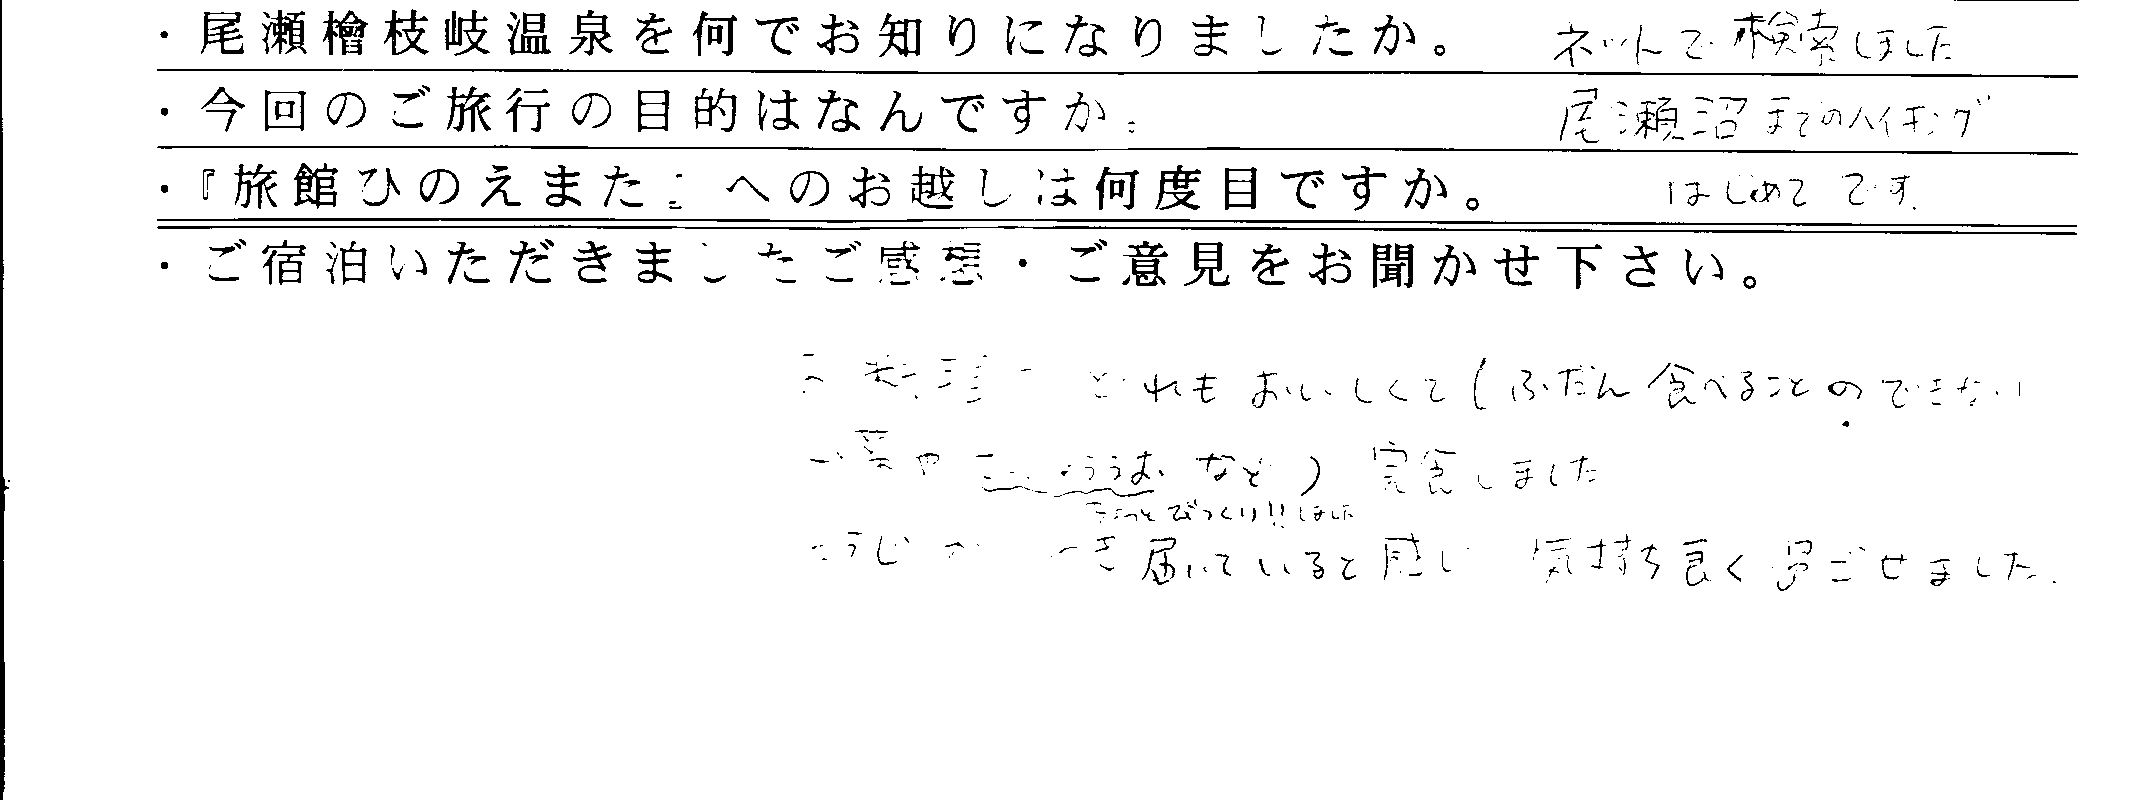 ・尾瀬檜枝岐温泉を何でお知りになりましたか。 ネットで検索しました
・今回のご旅行の目的はなんですか。 尾瀬沼までのハイキング
・『旅館ひのえまた』へのお越しは何度目ですか。 はじめてです.
・ご宿泊いただきましたご感想・ご意見をお聞かせ下さい。
お料理 どれもおいしくて(ふだん食べることのできない
など) 完食しました
ちょっとびっくり!!しました
そうじが いき届いていると感じ 気持ち良く過ごせました.